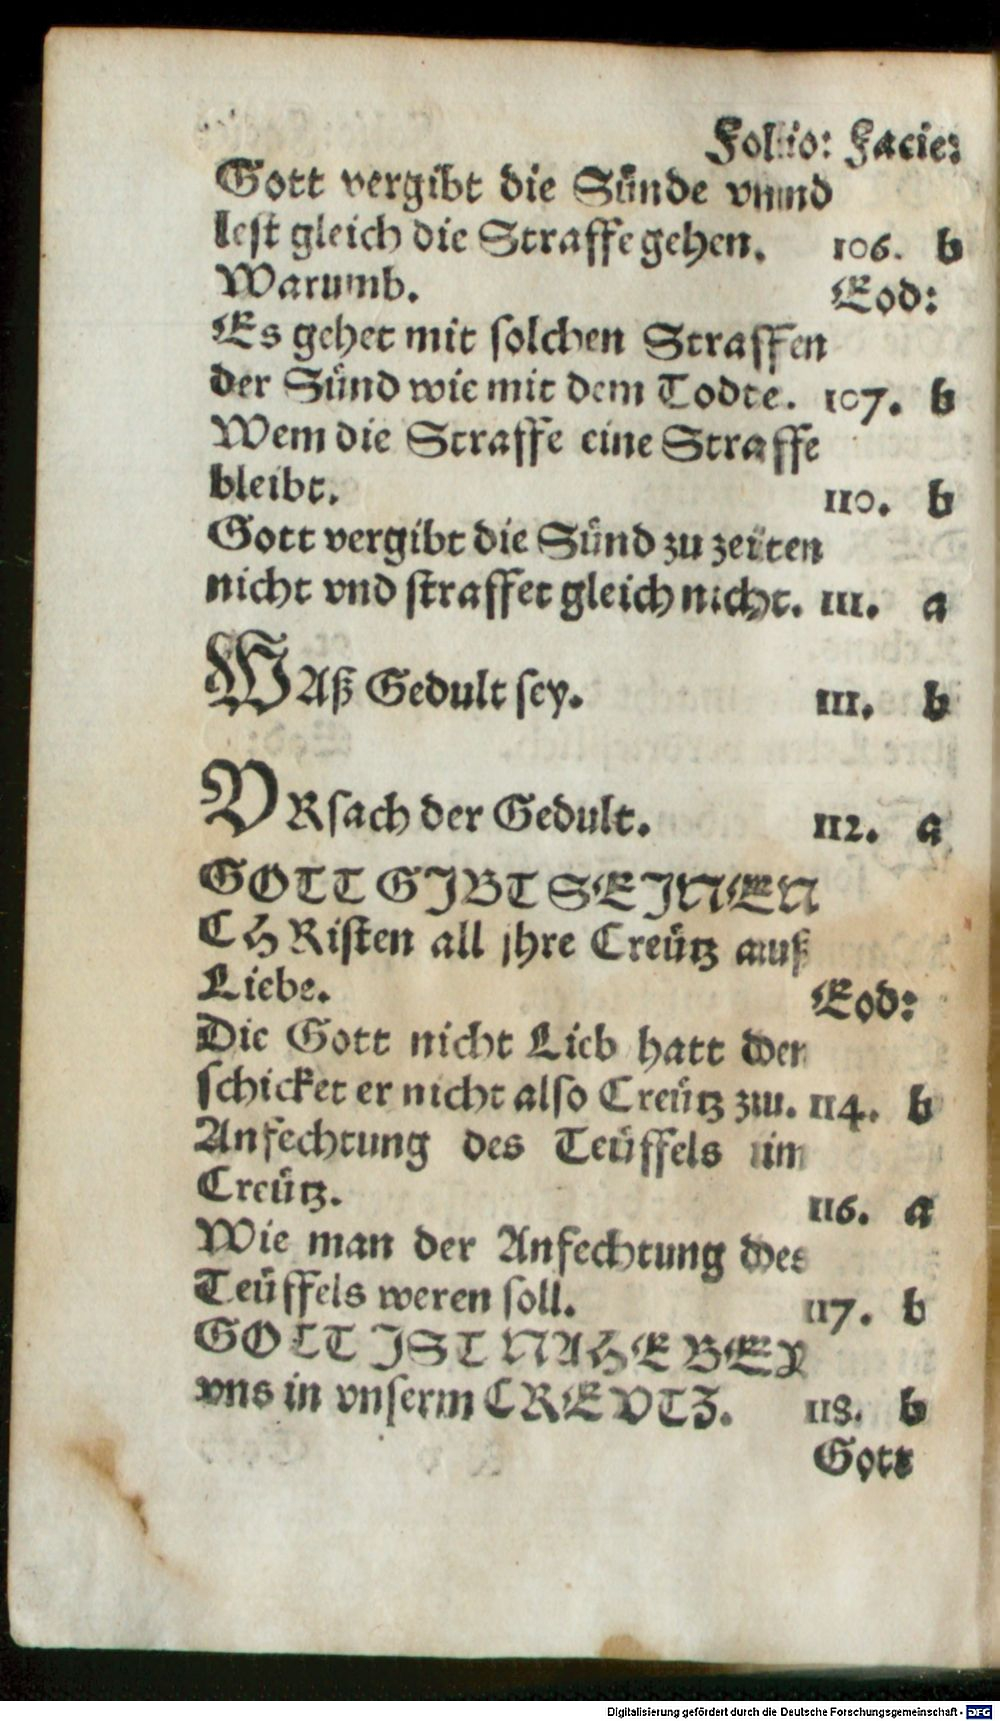 Folio: Facie:
Gott vergibt die Sünde vnnd
lest gleich die Straffe gehen. 106. b
Warumb. Eod:
Es gehet mit solchen Straffen
der Sünd wie mit dem Todte. 107. b
Wem die Straffe eine Straffe
bleibt. 110. b
Gott vergibt die Sünd zu zeiten
nicht vnd straffet gleich nicht. 111. a
WAß Gedult sey. 111. b
VRsach der Gedult. 112. a
GOTT GIBT SEINEN
CHRisten all jhre Creütz auß
Liebe. Eod:
Die Gott nicht Lieb hatt den
schicket er nicht also Creütz zu. 114. b
Anfechtung des Teüffels im
Creütz. 116. a
Wie man der Anfechtung des
Teüffels weren soll. 117. b
GOTT IST NAHE BEY
vns in vnserm CREVTZ. 118. b
Gott
Digitalisierung gefördert durch die Deutsche Forschungsgemeinschaft - DFG